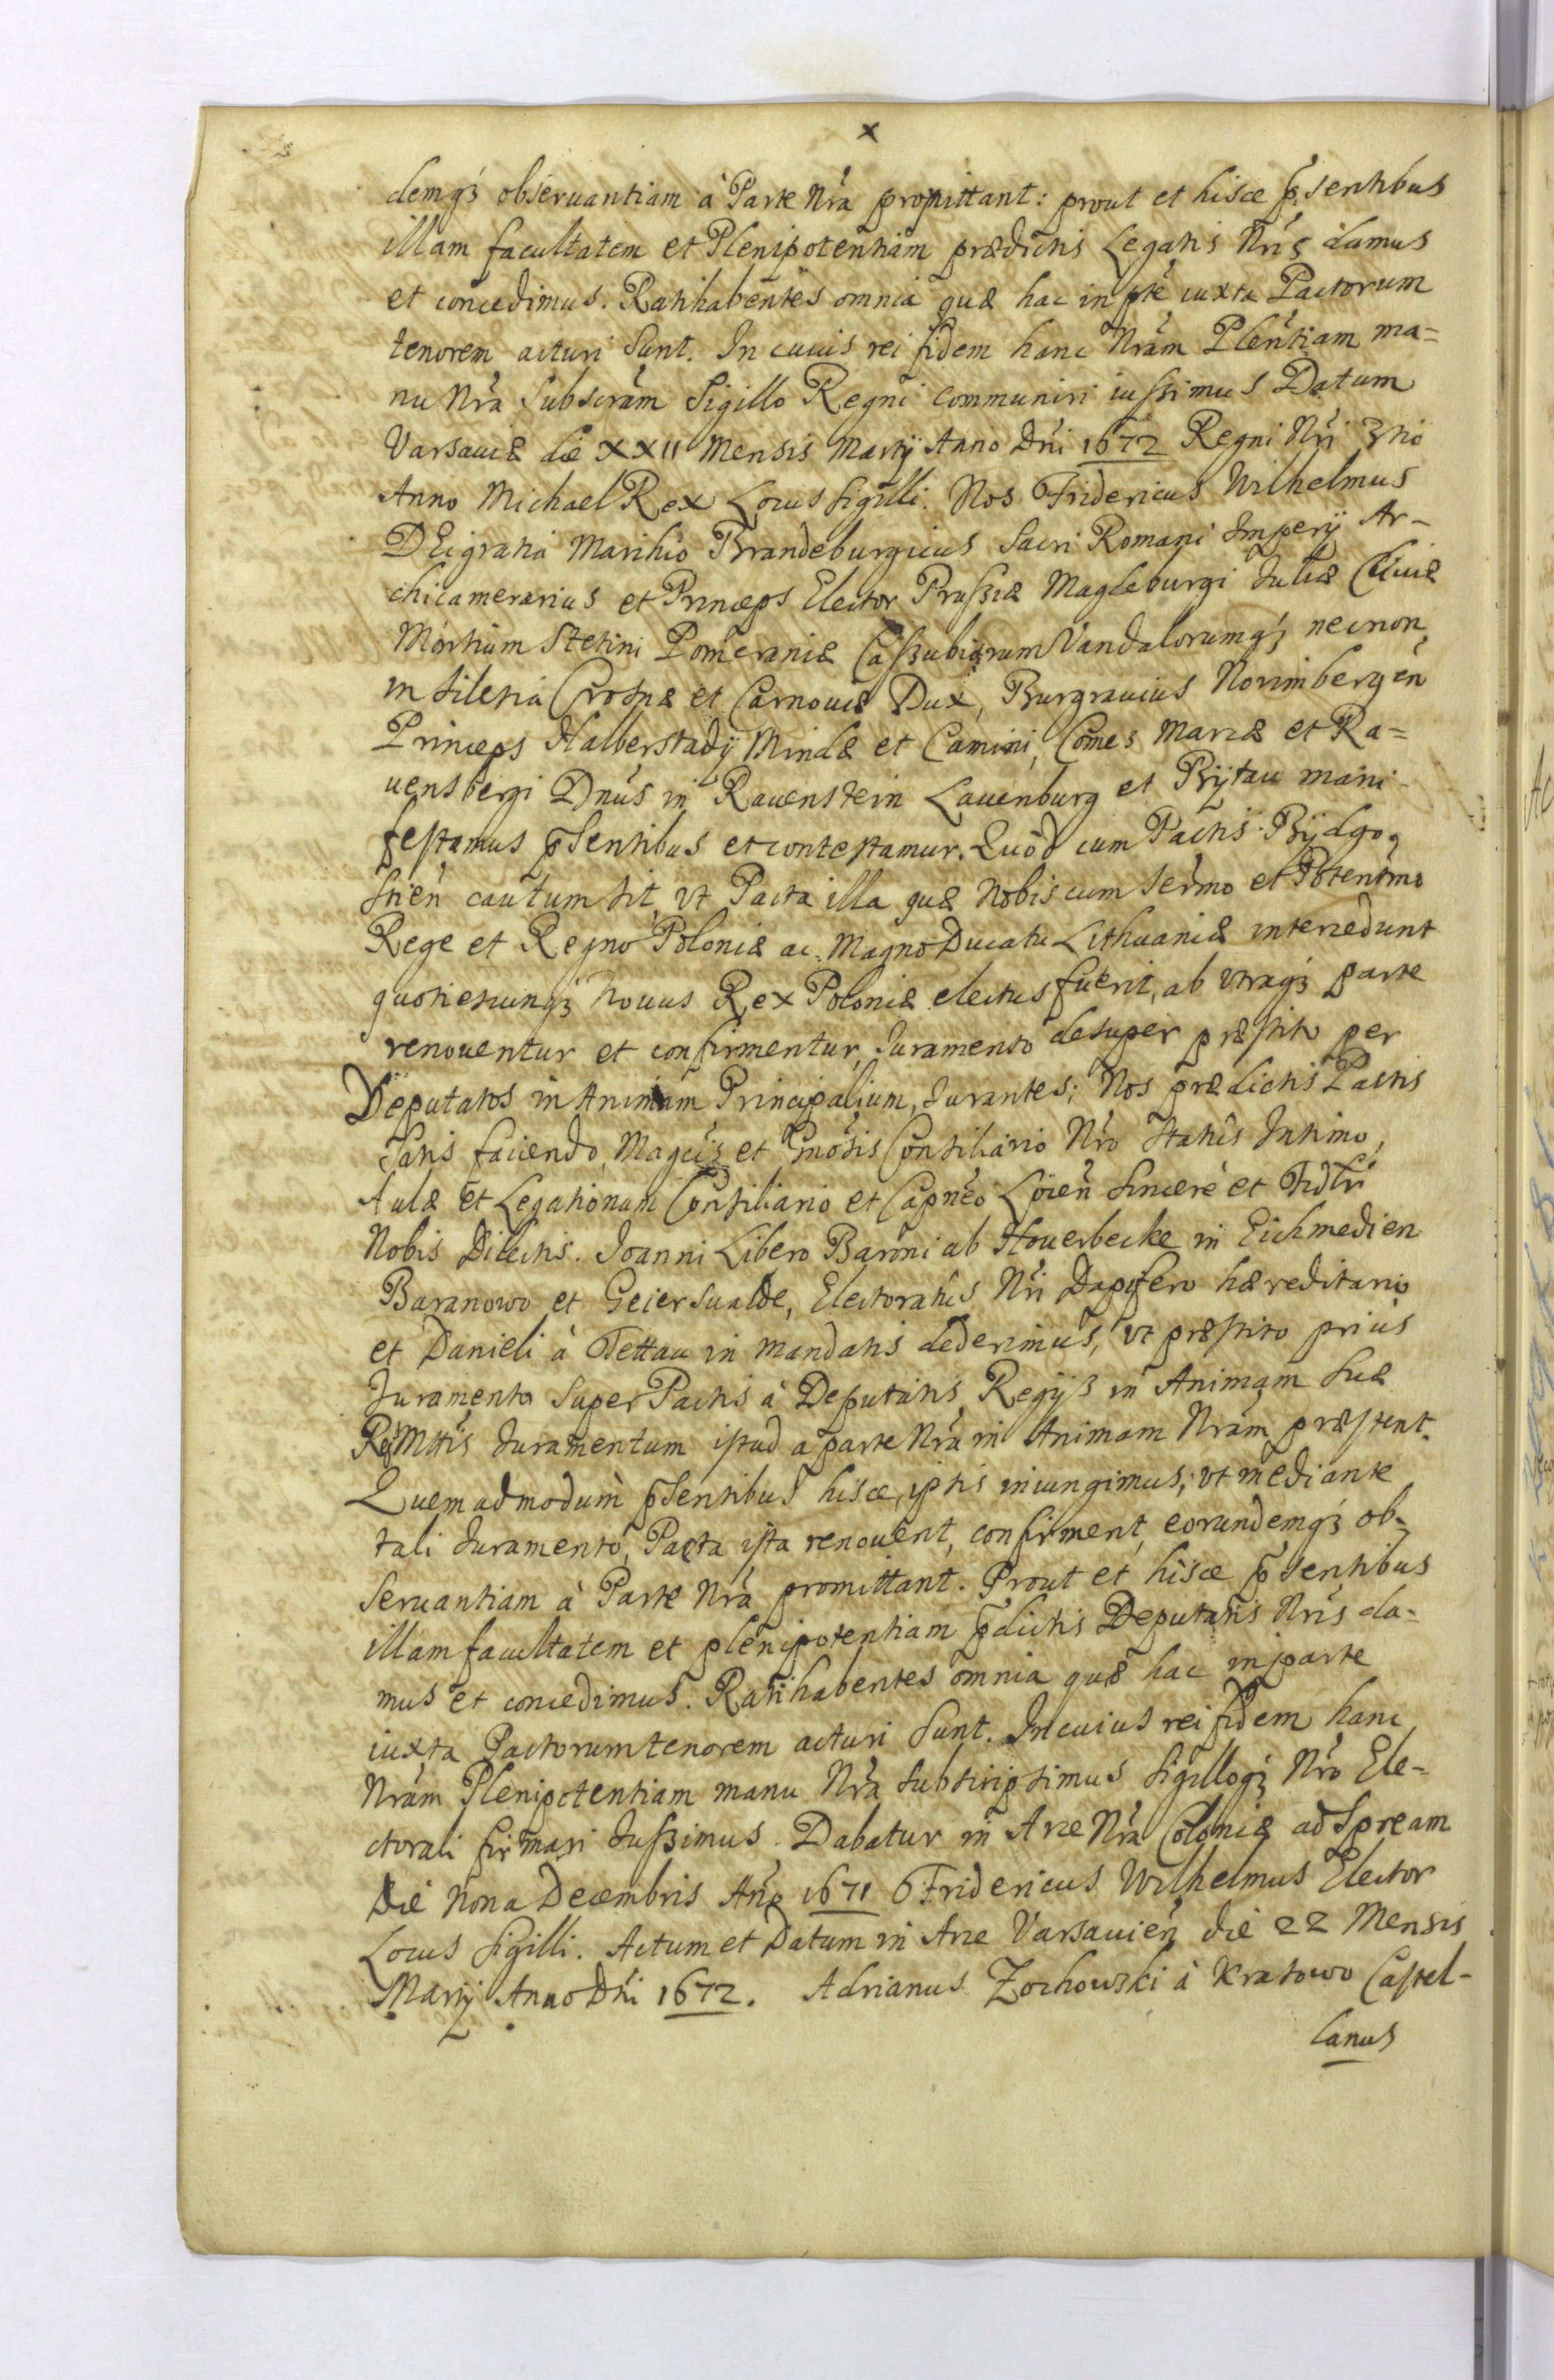 x
demq₃ obseruantiam à Parte Nrã promittant: prout et hisce p̃sentibus
illam facultatem et Plenipotentiam prædictis Legatis Nris damus
et concedimus. Ratihabentes omnia quæ hac in pte iuxta Pactorum
tenorem acturi sunt. In cuius rei fidem hanc Nram Plentiam ma=
nu Nra Subscram Sigillo Regni communiri iussimus Datum
Varsauiæ die XXII Mensis Martÿ Anno Dni 1672 Regni Nri 3tio
Anno Michael Rex Locus Sigilli. Nos Fridericus Wilhelmus
DEi gratia Marchio Brandeburgicus Sacri Romani Imperÿ Ar-
chicamerarius et Princeps Elector Prussiæ Magdeburgi Juliæ Cliuiæ
Montium Stetini Pomeraniæ Cassubiorum Vandalorumq₃ necnon
in Silesia Crosnæ et Carnouiæ Dux, Burgrauius Norimbergen
Princeps Halberstadÿ Mindæ et Camini, Comes Marcæ et Ra=
uensbergi Dnus in Rauenstein Lauenburg et Bÿtau mani-
festamus p̃sentibus et contestamur. Quod cum Pactis Bÿdgo-
stien cautum sit, vt Pacta illa quæ Nobis cum Sermo et Potentmo
Rege et Regno Poloniæ ac Magno Ducatu Lithuaniæ intercedunt
quotiescunq₃ Nouus Rex Poloniæ electus fuerit, ab vtraq₃ parte
renouentur et confirmentur, Juramento desuper præstito per
Deputatos in Animam Principalium, Jurantes; Nos prædictis Pactis
satis faciendo, Magcis et Gnosis Consiliario Nro Status Intimo,
Aulæ et Legationum Consiliario et Capneo Lcien sincere et Fidlr
Nobis Dilectis. Joanni Libero Baroni ab Houerbecke in Eichmedien
Baranowo et Geiersualde, Electoratus Nri Dapifero hæreditario
et Danieli à Tettau in mandatis dederimus, vt præstito prius
Juramento super Pactis à Deputatis Regÿs in Animam suæ
R Mttis Juramentum istud a parte Nra in Animam Nram præstent.
Quemadmodum p̃sentibus hisce, ipsis iniungimus, vt mediante
tali Juramento, Pacta ista renouent, confirment, eorundemq₃ ob-
seruantiam à Parte Nra promittant. Prout et hisce p̃sentibus
illam facultatem et plenipotentiam p̃dictis Deputatis Nris da-
mus et concedimus. Ratihabentes omnia quæ hac in parte
iuxta Pactorum tenorem acturi sunt. In cuius rei fidem hanc
Nram Plenipotentiam manu Nra subscripsimus Sigilloq₃ Nro Ele-
ctorali firmari Jussimus. Dabatur in Arce Nra Coloniæ ad Spream
Die Nona Decembris Ano 1671 Fridericus Wilhelmus Elector
Locus Sigilli. Actum et Datum in Arce Varsauien die 22 Mensis
Martÿ Anno Dni 1672. Adrianus Zochowski à Kratowo Castel-
lanus